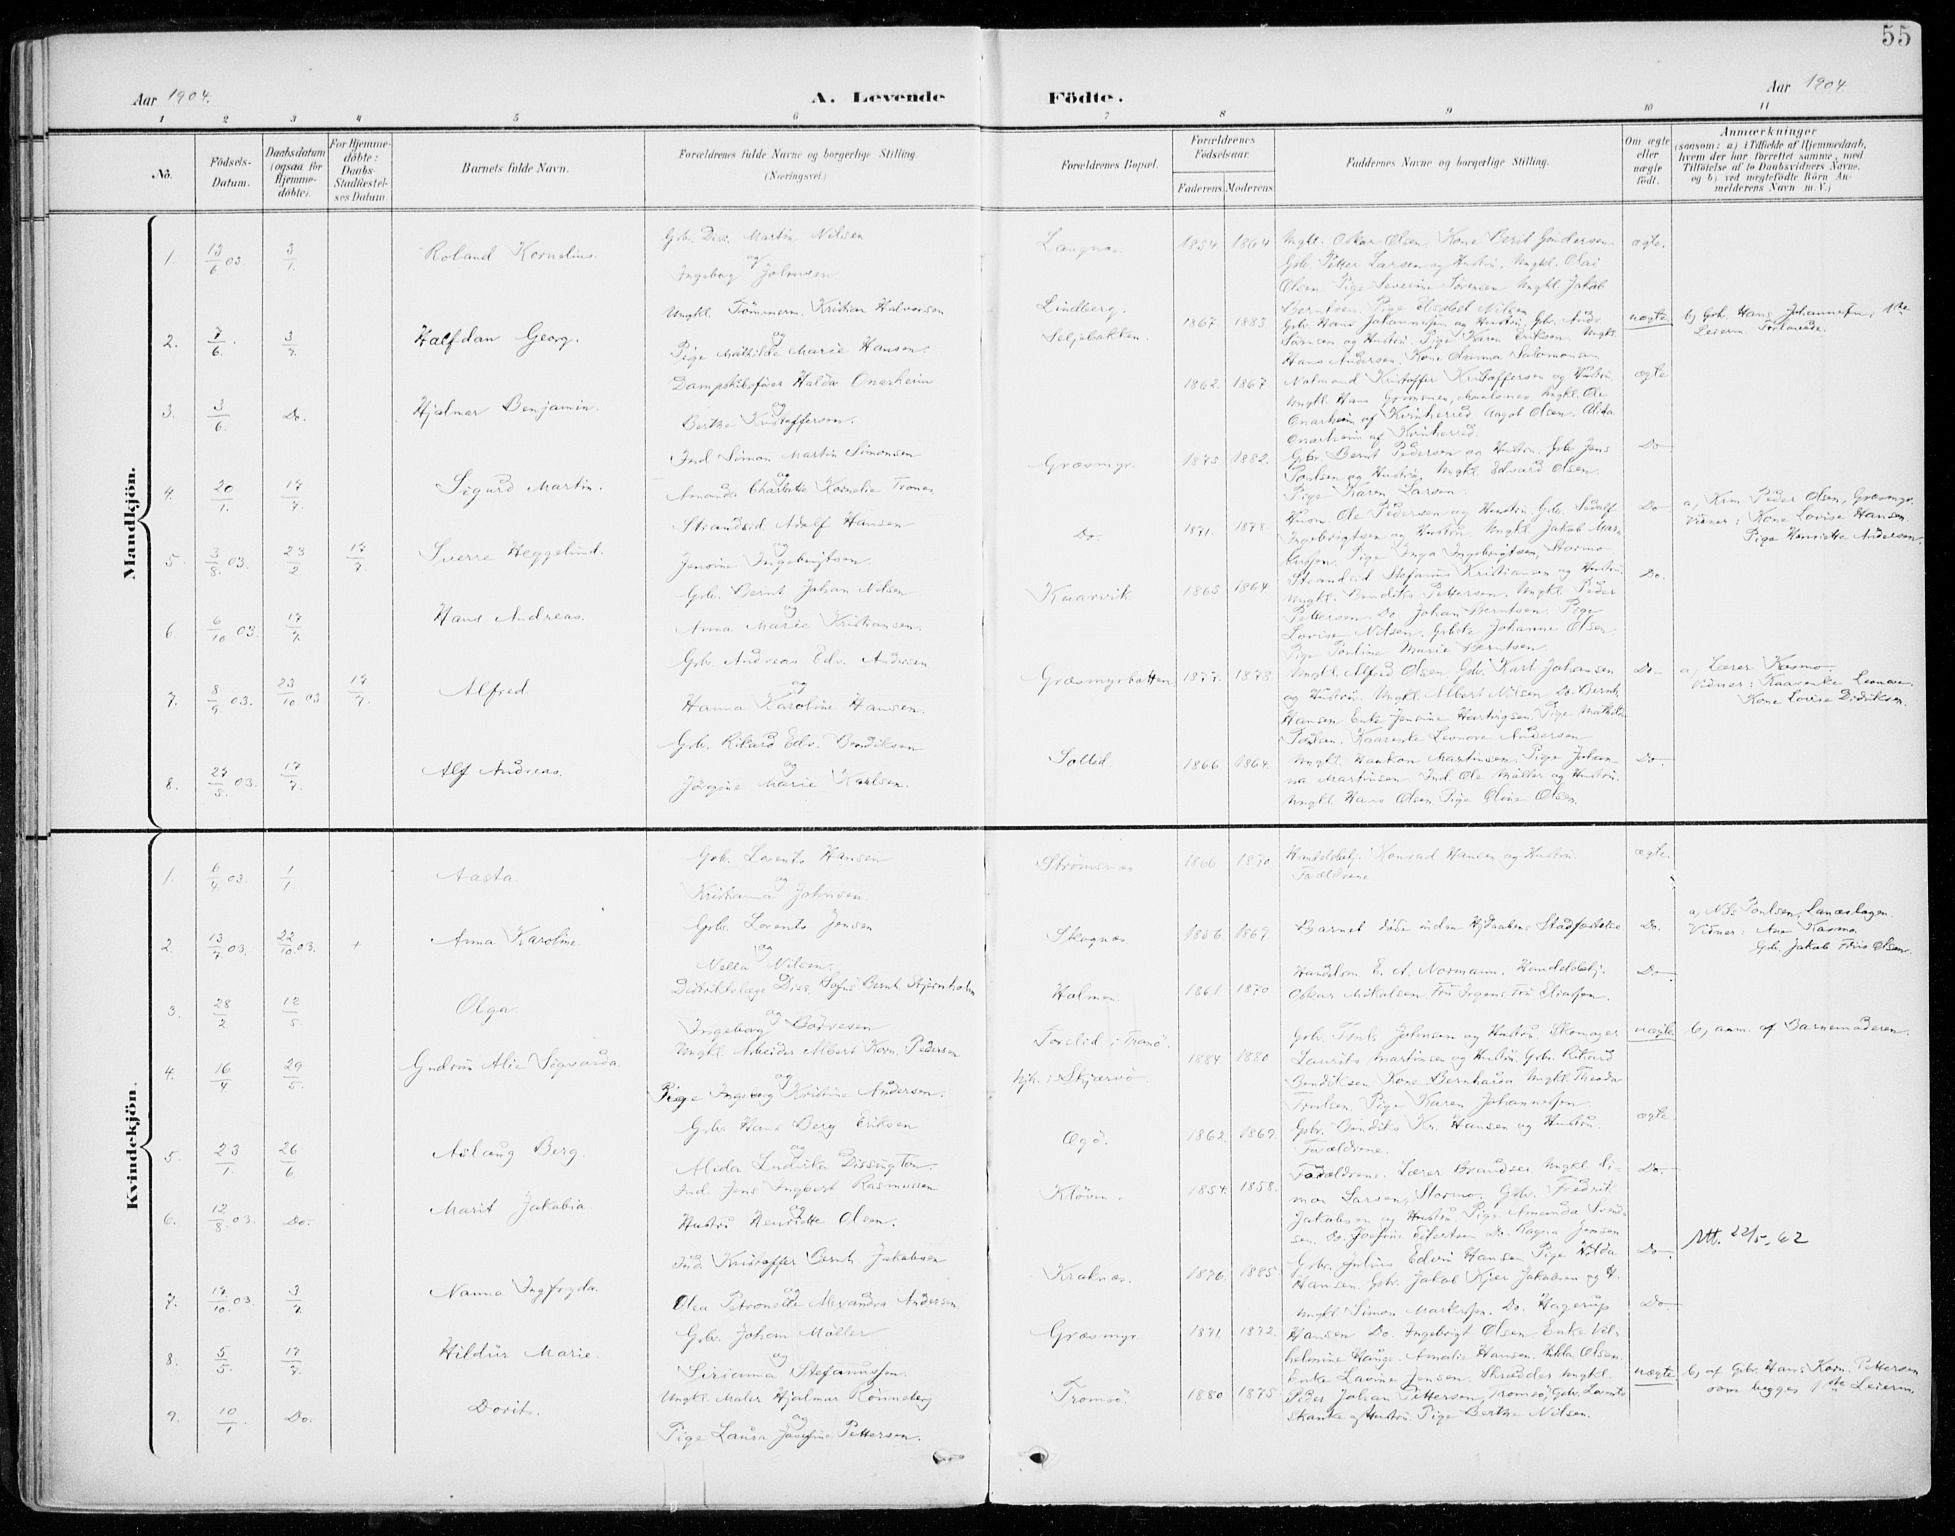 55
Aar 1904.
A. Levende Födte.
Aar 1904.
1 2 3 4 5 6 7 8 9 10 11
No.
Födsels-Datum.
Daabsdatum (ogsaa for Hjemme-döbte).
For Hjemme-döbte: Daabs-Stadfæstel-ses Datum
Barnets fulde Navn.
Forældrenes fulde Navne og borgerlige Stilling
(Næringsvei.)
Forældrenes Bopæl.
Forældrenes Födselsaar.
Faderens Moderens
Faddernes Navne og borgerlige Stilling.
Om ægte eller uægte födt.
Anmærkninger
(saasom: a) i Tilfælde af Hjemmedaab,
hvem der har forrettet samme, med
Tilföielse af to Daabsvidners Navne.
og b) ved uægtefödte Börn An-
melderens Navn m. V.)
Mandkjön.
1. 13/6 03. 3/1. Roland Kornelius.
Gbr. Diss. Martin Nilsen
og
Ingeborg Johnsen
Langnes. 1854. 1864.
Ungkl. Oskar Olsen. Kone Berit Gundersen.
Gbr. Petter Larsen og Hustru. Ungkl. Olai
Olsen Pige Severine Sørensen Ungkl. Jakob
Berntsen. Pige Elisabet Nilsen
ægte.
2. 7/6. 3/7. Halfdan Georg.
Ungkl. Tömmerm. Kristian Halvorsen
og
Pige Mathilde Marie Hansen.
Lindberg.
Seljebakken. 1867. 1883.
Gbr. Hans Johannesen og Hustru, Gbr. Andr.
Sörensen og Hustru. Pige Karen Eriksen. Ungkl.
Hans Andersen. Kone Salomonsen
uægte
b) Gbr. Hans Johannesen, 1ste
Leierm.
3. 3/6. Do. Hjalmar Benjamin.
Dampskibsförer Haldor Onarheim
og
Berthe Kristoffersen.
1862. 1867
Kristoffer Kristoffersen og Hustru.
Ungkl. Hans Ungkl. Ole
Onarheim af Kvinherred Olsen. Alida
Onarheim af Kvinherred.
ægte
4. 20/1. 17/7. Sigurd Martin.
Ind. Simon Martin Simonsen
og
Amanda Charlotte Kornelie
Græsmyr. 1875 1882.
Gbr. Bernt Pedersen og Hustru. Gbr. Jens
Poulsen og Hustru. Ungkl. Edvard Olsen.
Pige Karen Larsen.
Do
5. 3/8. 03. 23/2 17/7. Sverre Heggelund.
Strandsid. Adolf Hansen
og
Jensine Ingebrigtsen.
Do. 1871. 1878.
Husm. Ole Pedersen og Hustru, Gbr. Sedolf
Ingebrigtsen og Hustru. Ungkl. Jakob Mar-
Pige Inga Ingebrigtsen, Stormo.
Do
a, Krm Peder Olsen, Græsmyr.
Vidner: Kone Lovise Hansen.
Pige Henriette Andersen.
6. 6/10 03. 17/7. Hans Andreas.
Gbr. Bernt Johan Nilsen
og
Anna Marie Kristiansen.
Kaarvik 1865 1864
Strandsid Stefanus Kristiansen og Hustru.
Ungkl. Bendiks Pettersen. Ungkl. Peder
Pettersen. Do. Johan Berntsen. Pige
Lovise Nilsen. Johanne Olsen.
Pige Pauline Marie Berntsen.
Do.
7. 8/9. 03. 23/10 03 17/7. Alfred.
Gbr. Andreas Edv. Andersen
og
Hanna Karoline Hansen.
Græsmyrbotten 1877. 1878
Ungkl. Alfred Olsen. Gbr. Kart Johansen
og Hustru. Ungkl. Albert Nilsen Do. Bernh.
Hansen Enke Jensine Hartvigsen. Pige Mathilde
Poulsen. Leonore Andersen
Do
a, Lærer Kasmo.
Vidner: Leonore
Kone Lovise Didriksen.
8. 27/5. 03. 17/7. Alf Andreas.
Gbr. Rikard Edv. Bendiksen
og
Jörgine Marie Karlsen.
Sollid 1866 1864.
Ungkl. Haakon Martinsen. Pige Johan-
na Martinsen. Ind. Ole Möller og Hustru.
Ungkl. Hans Olsen Pige Oline Olsen.
Do
Kvindekjön.
1. 6/4. 03. 1/1. Aasta.
Gbr. Lorents Hansen
og
Kristianna Johnsen.
Strömsnes 1866 1870.
Handelsbetj. Konrad Hansen og Hustru.
Forældrene.
ægte.
2. 13/7 03. 22/10. 03. + Anna Karoline.
Gbr. Lorents Jensen
og
Nella Nilsen.
Skognes 1856 1869.
Barnet döde inden Hjdaabens Stadfæstelse
Do.
a, Nils Poulsen,
Vidner: Kasmo.
Gbr. Jakob Olsen.
3. 28/2 12/5 Olga.
Distriktslæge Diss. Sofus Bernh. Stjernholm
og
Ingeborg Bödvesen
Holmen. 1861 1870
Handelsm. E. A. Normann. Handelsbetj.
Oskar Mikalsen. Fru Irgens Fru Eliasen.
Do
4. 16/4 29/5. Gudrun Alie Sigvarda.
Ungkl. Arbeider Albert Korn. Pedersen
og
Pige Ingeborg Kristine Andersen.
i Tranö.
hjh. i Skjærvö. 1884 1880
Gbr. Johnsen og Hustru. Skomager
Laurits Martinsen og Hustru Gbr. Rikard
Bendiksen. Kone Bernharda Ungkl. Theodor
Poulsen. Pige Karen Johannesen.
uægte
b, anm. af Barnemoderen.
5. 23/1. 26/6 Aslaug Berg.
Gbr. Hans Berg Eriksen
og
Alida Ludvika Dissington.
1862. 1869.
Gbr. Bendiks Kr. Hansen og Hustru.
Forældrene.
ægte
6. 12/8. 03. Do. Marit Jakobia
Ind. Jens Ingbert Rasmussen
og
Hustru Henriette Olsen.
Klöven. 1854. 1858.
Forældrene. Lærer Ungkl. Si-
mon Larsen, Stormo. Gbr. Fredrik
Jakobsen og Hustru. Pige Amanda Svend-
sen. Do. Josefine Do. Ragna Jensen
Do
7. 17/10. 03. 3/7. Nanna Ingfryda.
Ind. Kristoffer Bernh. Jakobsen
og
Olea Petronelle Alexandra Andersen
Kraknes. 1876. 1885.
Gbr. Julius Edvin Hansen Pige Hilda
Hansen. Gbr. Jakob Kjær Jakobsen og H.
Do
Att. 22/5. 62
8. 5/5. 17/7. Hildur Marie.
Gbr. Johan Möller
og
Sirianna Stefanussen.
Græsmyr 1871. 1872.
Ungkl. Simon Markussen. Do. Hagerup
Hansen Do. Ingebrigt Olsen. Enke Vil-
helmine Hauge. Amalie Hansen. Hilda Olsen.
Do
9. 10/1 Do. Dorit.
Ungkl. Maler Hjalmar Rönneberg
og
Pige Laura Josefine Pettersen.
Tromsö. 1880 1875
Enke Lavine Jensen. Skrædder Ungkl.
Peder Johan Pettersen, Tromsö, Gbr. Lorents
Skanke og Hustru. Pige Berthe Nilsen.
uægte
b, af Gbr. Hans Korn. Pettersen
som begges 1ste Leierm.